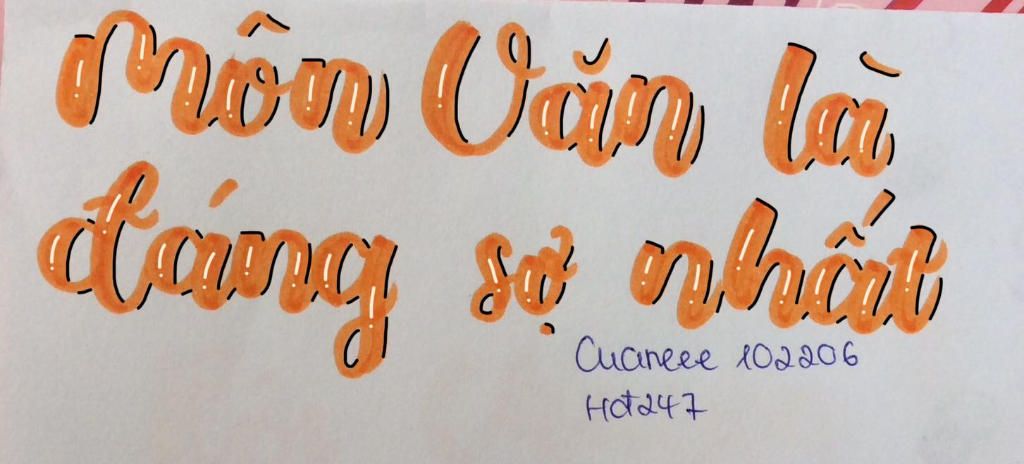 Môn Văn là
đáng sợ nhất
Cuaneee 102206
Hđ247